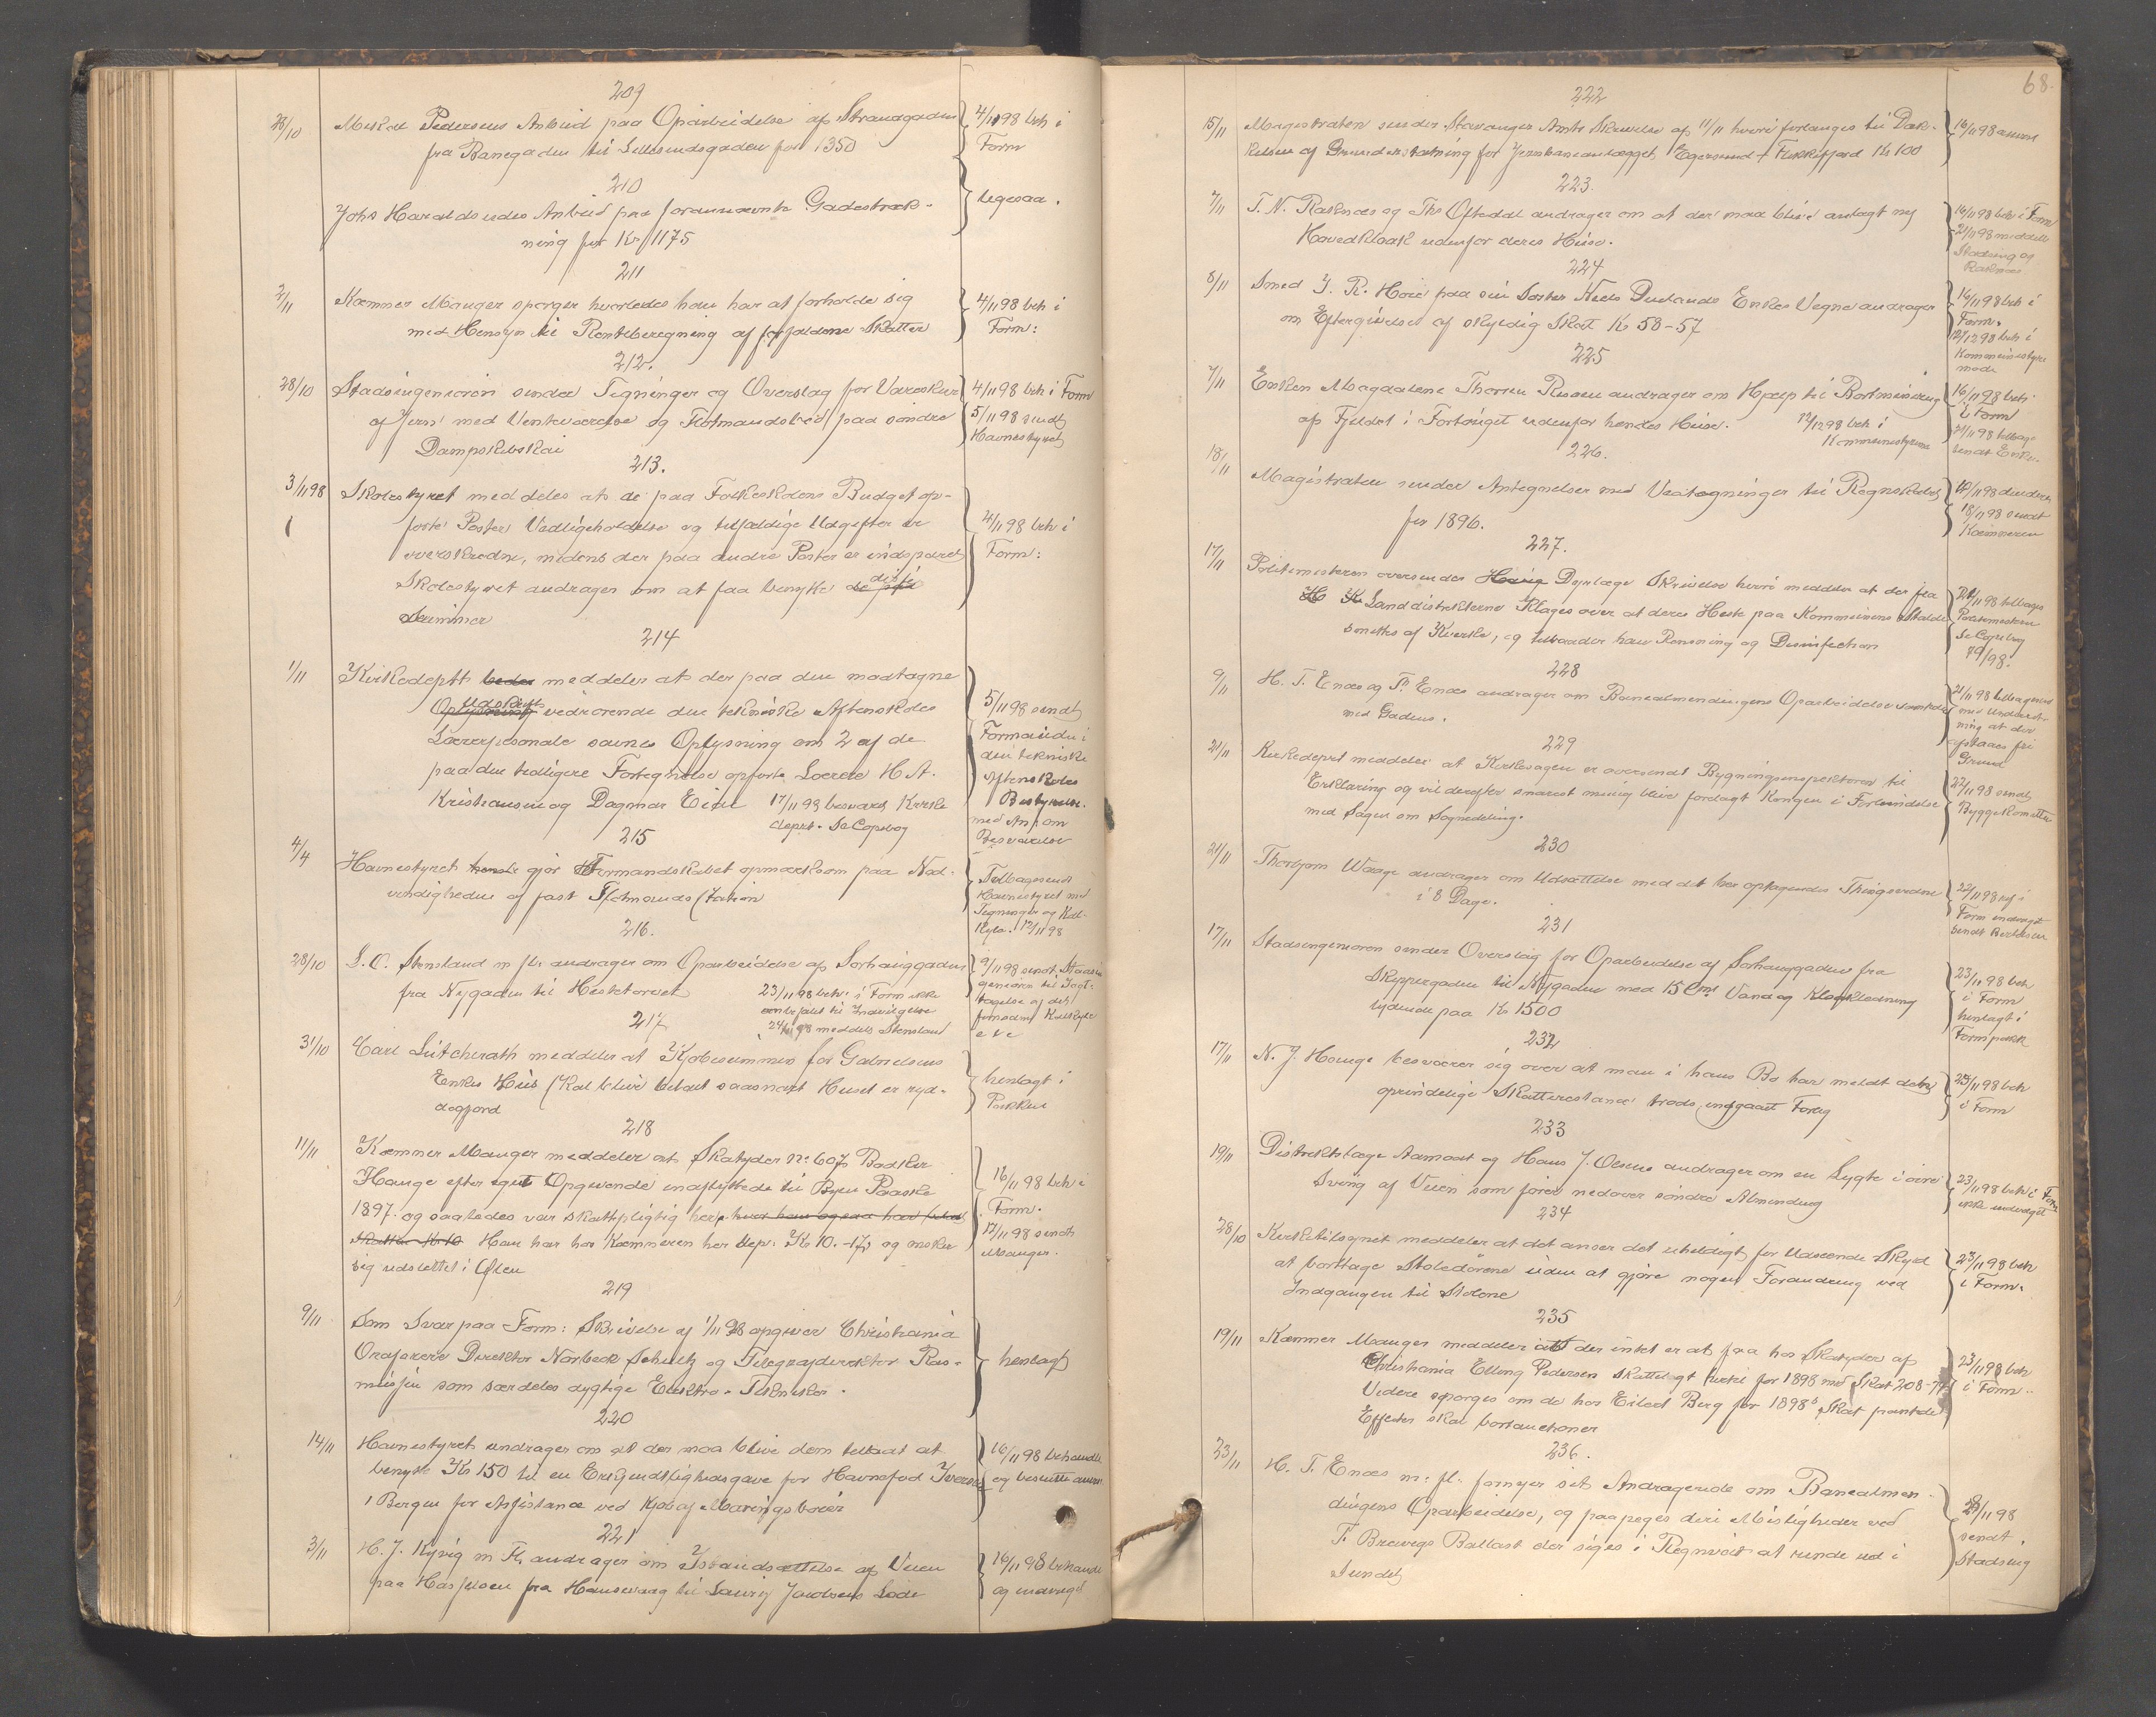 209
28/10 Mikal Pedersens Anbud paa Oparbeidelse af Strandgaden
fra Banegaden til Lillesundsgaden for 1350
4/11 98 beh i
Form
210
Johs Haraldseides Anbud paa forannævnte Gadestræk-
ning for Kr 1175
ligesaa.
211
2/11 Kæmner Mauger spørger hvorledes han har at forholde sig
med Hensyn til Renteberegning af forfaldene Skatter
4/11 98 beh i
Form:
212.
28/10 Stadsingeniøren sender Tegninger og Overslag for Vareskur
af Jern med Venteværelse og Flotmandsbod paa søndre
Dampskibskai
4/11 98 beh i Form
5/11 98 sendt
Havnestyret
213.
3/11 98 Skolestyret meddeles at de paa Folkeskolens Budget op-
førte Poster Vedligeholdelse og tilfældige Udgifter er
overskredne, medens der paa andre Poster er indsparet
Skolestyret andrager om at faa benytte disse
Summer
4/11 98 beh i
Form:
214
1/11 Kirkedeptt beder meddeler at der paa den modtagne
Udskrift vedrørende den tekniske Aftenskoles
Lærerpersonale savnes Oplysning om 2 af de
paa den tidligere Fortegnelse opførte Lærere H A.
Kristiansen og Dagmar Eide
17/11 98 besvaret Kirke
dept. Se Copibog
5/11 98 sendt
Formanden i
den tekniske
Aftenskoles
Bestyrelse.
med Anm om
Besvarelse
215
4/4 Havnestyret gjør Formandskabet opmærksom paa Nød-
vendigheden af fast Flotmandsstation
Tilbagesendt
Havnestyret med
Tegninger og Kal-
kyle. 12/11 98
216.
28/10 L. O. Stensland m fl. andrager om Oparbeidelse af Sørhauggaden
fra Nygaden til Hestetorvet
23/11 98 beh: i Form ikke
anbefalet til Indvilgelse
24/11 98 meddelt Stensland
9/11 98 sendt Stadsin
geniøren til Iagt-
tagelse af det
fornødne Kalkyle
etc
217
31/10 Carl Lütcherath meddeler at Kjøbesummen for Gabrielsens
Enkes Hus skal blive betalt saasnart Huset er ryd-
degjord
henlagt i
Pakken
218
11/11 Kæmner Mauger meddeler at Skatyder No 607 Bødker
Hauge efter eget Opgivende indflyttede til Byen Paaske
1897. og saaledes var skattepligtig her hvor han ogsaa har betalt
Skatten Kr 10 Han har hos Kæmneren her dep. Kr 10.-17 og ønsker
sig udslettet i Ølen
16/11 98 beh i
Form.
17/11 98 sendt
Mauger.
219
9/11 Som Svar paa Form: Skrivelse af 1/11 98 opgiver Christiania
Ordfører Direktør Norbeck Schultz og Telegrafdirektør Ras-
mussen som særdeles dygtige Elektro-Tekniker.
henlagt
220
14/11 Havnestyret andrager om at der maa blive dem tilladt at
benytte Kr 150 til en Erkjendtlighedsgave for Havnefod Iversen
i Bergen for Assistance ved Kjøb af Maringsbøier
16/11 98 behandlet
og besluttet anm
221
3/11 H. J. Kyvig m Fl. andrager om Istandsættelse af Veien
paa Hasseløen fra Hansevaag til Lauritz Jacobsens Sode
16/11 98 behandlet
og indvilget
68.
222
15/11 Magistraten sender Stavanger Amts Skrivelse af 11/11 hvori forlanges til Dæk-
kelsen af Grunderstatning for Jernbaneanlægget Egersund-Flekkefjord Kr 100
16/11 98 anvist
223.
7/11 T. N. Raknæs og Ths Oftedal andrager om at der maa blive anlagt ny
Hovedkloak udenfor deres Huse.
16/11 98 beh i Form
21/11 98 meddelt
Stadsing og
Raknæs
224
8/11 Smed J. R. Høie paa sin Søster Niels Duelands Enkes Vegne andrager
om Eftergivelse af skyldig Skat Kr 58-57
16/11 98 beh i
Form.
12/12 98 beh i
Kommunestyre
møde
225
7/11 Enken Magdalene Thorsen Risøen andrager om Hjælp til Bortminering
af Fjeldet i Fortouget udenfor hendes Huse.
12/12 98 beh i
Kommunestyrem
16/11 98 beh
i Form
21/11 98 tilbage
sendt Enken.
226.
18/11 Magistraten sender Antegnelser med Vedtegninger til Regnskabet
for 1896.
18/11 98 sendt
Kæmneren
227.
17/11 Politimesteren oversender Dyrlæge Skrivelse hvori meddeles at der fra
Landdistrikterne klages over at deres Heste paa Kommunens Stalde
smittes af Kverke, og tilraader han Rensning og Desinfection
21/11 98 tilbage
Politimesteren
Se Copibog
228
9/11 H. T. Enæs og Th Enæs andrager om Banealmendingens Oparbeidelse
med Gaden.
21/11 98 tilbagesend
med Underret-
ning at der
afstaaes fri
Grund
229
21/11 Kirkedepet meddeler at Kirkesagen er oversendt Bygningsinspektøren til
Erklæring og vil derefter snarest mulig blive foredragt Kongen i Forbindelse
med Sagen om Sognedeling.
22/11 98 sendt
Byggekomiteen
230
21/11 Thorbjørn Waage andrager om Udsættelse med det her optagendes Thingsvidne
i 8 Dage.
22/11 98 ref i
Form indvilget
231
17/11 Stadsingeniøren sender Overslag for Oparbeidelse af Sørhauggaden fra
Skippergaden til Nygaden med 15 Cms Vand og Kloakledning
lydende paa Kr 1500
23/11 98 beh
i Form
henlagt i
Formpakk
232
17/11 N. J. Hauge besværer sig over at man i hans Bo har meldt den
oprindelige Skatterestance trods indgaaet Forlig
23/11 98 beh
i Form
233
19/11 Distriktslæge Aamodt og Hans J. Olsens andrager om en Lygte i øvre
Sving af Veien som fører nedover søndre Almending
23/11 98 beh i Form
ikke indvilget
234
28/10 Kirketilsynet meddeler at det anser det uheldigt for Udseende Skyld
at borttage Stoledørene uden at gjøre nogen Forandring ved
Indgangen til Stolene
23/11 98 beh
i Form.
235
19/11 Kæmner Mauger meddeler at der intet er at faa hos Skatyder af
Christiania Elling Pedersen skattelagt for 1898 med Skat 208-
Videre spørges om de hos Eilert Berg for 1898s Skat pantede
Effecter skal bortauctioner
23/11 98 beh
i Form.
236.
23/11 H. T. Enæs m. fl. fornyer sit Andragende om Banealmen-
dingens Oparbeidelse, og paapeges deri Misligheder ved
T. Brewegs Ballast der siges i Regnveir at rinde ud i
Sundet
24/11 98
sendt
Stadsing